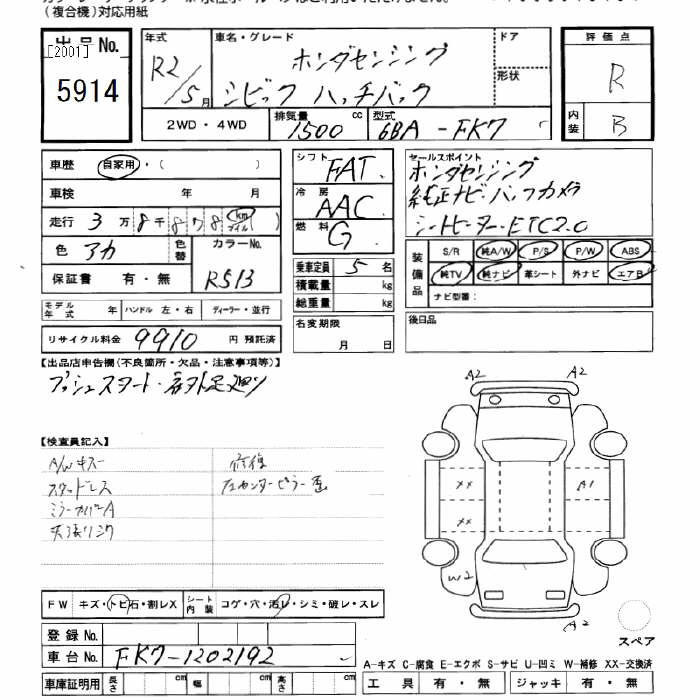 (複合機)対応用紙
出品No.
[2001]
5914
年式
R2/5月
車名・グレード
ホンダセンシング
シビック ハッチバック
ドア
形状
2WD・4WD
排気量 1500 cc
型式 6BA-FK7
評価点
R
内装
B
車歴 自家用・( )
車検 年 月
走行 3万8千878 km マイル ( )
色 アカ
色替
カラーNo.
R513
保証書 有・無
モデル年式 年 ハンドル 左・右 ディーラー・並行
リサイクル料金 9910 円 預託済
シフト FAT
冷房 AAC
燃料 G
乗車定員 5 名
積載量 kg
総重量 kg
名変期限
月 日
セールスポイント
ホンダセンシング
純正ナビ・バックカメラ
シートヒーター・ETC2.0
装備品
S/R 純A/W P/S P/W ABS
純TV 純ナビ 革シート 外ナビ エアB
ナビ型番:
後日品
【出品店申告欄(不良箇所・欠品・注意事項等)】
プッシュスタート・
【検査員記入】
A/Wキズ
スタッドレス
ミラーカバーA
修復
左センターピラー
A2 A2
XX A1
XX
W2
A2
スペア
FW キズ・トビ石・割レX
シート内装 コゲ・穴・汚レ・シミ・破レ・スレ
登録No.
車台No. FK7-1202192
車庫証明用 長さ 幅 高さ
A-キズ C-腐食 E-エクボ S-サビ U-凹ミ W-補修 XX-交換済
工具 有・無 ジャッキ 有・無